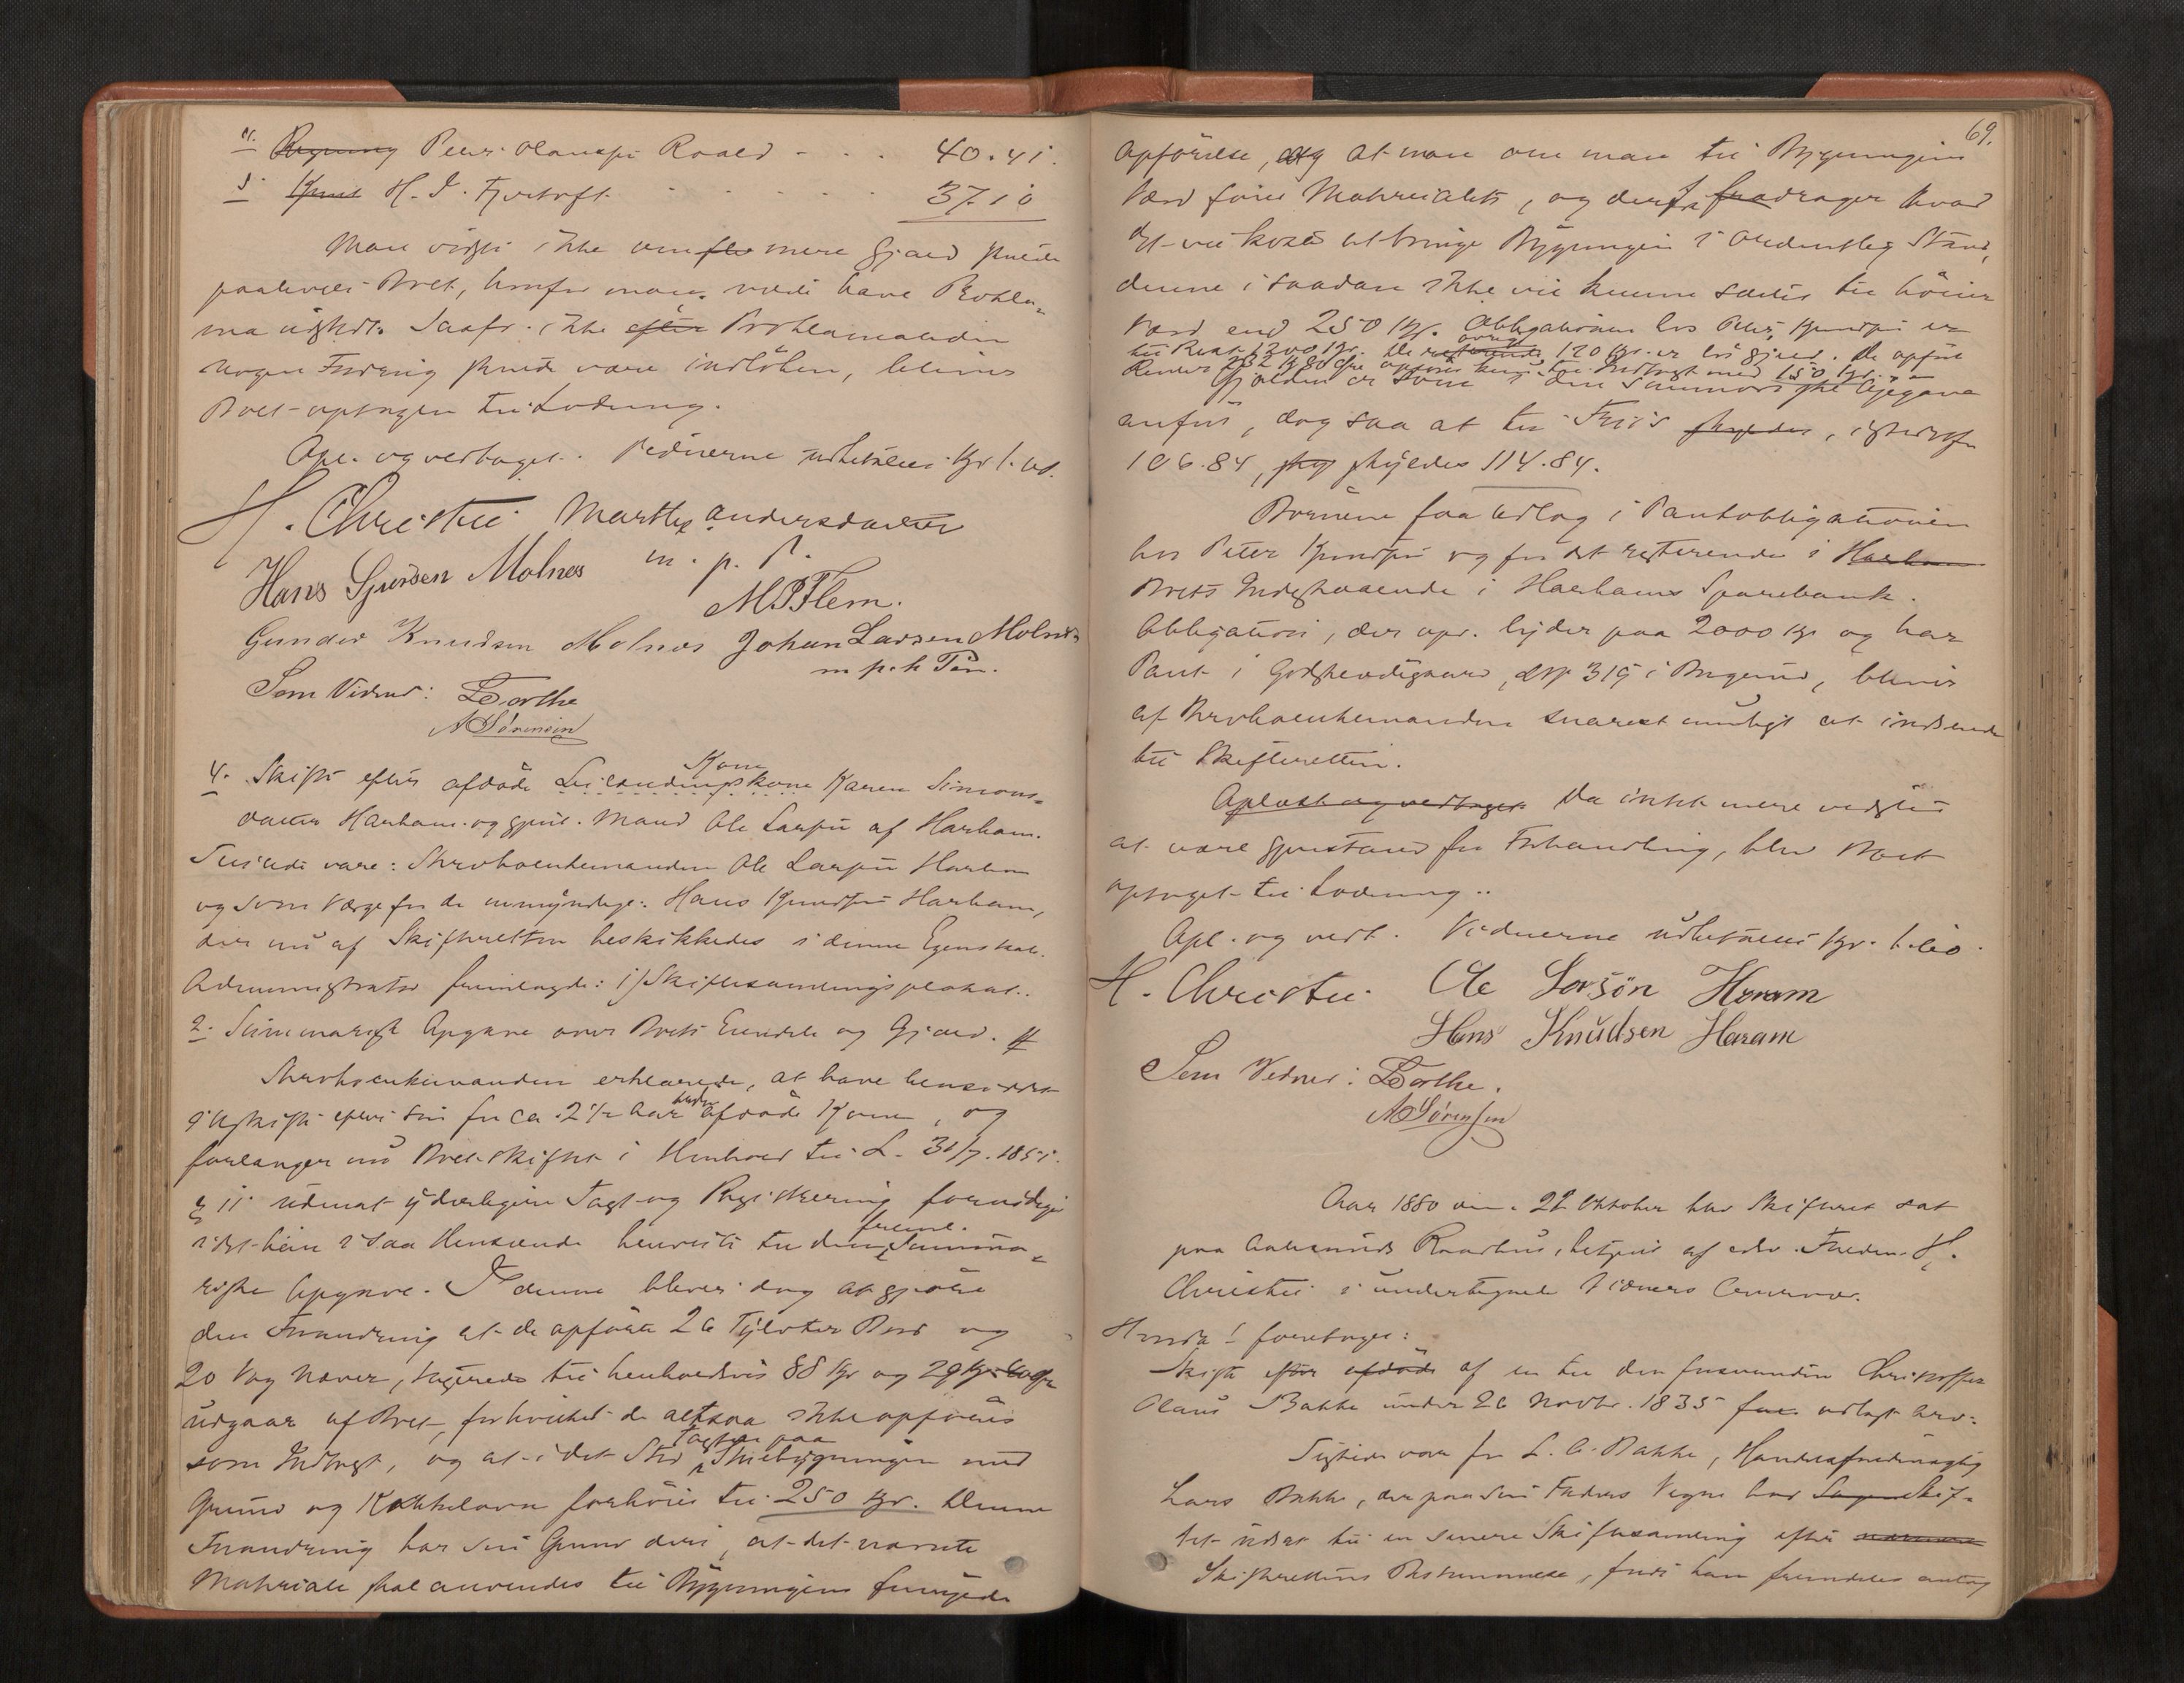 4. Regning Peter Olausen Roald - . . 40.41.
5. Knut H. I. Fjortoft . . . . . 37.10
Man vidste ikke om flere mere Gjæld skulde
paahvile Boet, hvorfor man vilde have Prokla-
ma udstedt. Saafr. ikke efter Proklamatiden
nogen Fordring skulde være indløben, bliver
Boet optagen til Lodning.
Opl. og vedtaget. Vidnerne udbetaltes Kr 1.
H. Christie Marthe Andersdatter
m. p. P.
Hans Sjursen Molnes
M P Flem.
Gunder Knudsen Molnes Johan Larsen Molnes
m. p. h. Pen.
Som Vidner: L Dorthe
A Sørensen
4. Skifte efter afdøde Leilændingskone Kone Karen Simons-
datter Harham og gjenl. Mand Ole Larsen af Harham.
Tilstede vare: Strvboenkemanden Ole Larsen Harham
og som Værge for de umyndige: Hans Knudsen Harham,
der nu af Skifteretten beskikkedes i denne Egenskab.
Administrator fremlagde: 1) Skiftesamlingsplakat.
2. Summarisk Opgave over Boets Eiendele og Gjæld. #
Strvboenkemanden erklærede, at have hensiddet
i Uskifte efter sin for ca. 2 1/2 Aar siden afdøde Kone, og
forlanger nu Boet skiftet i Henhold til L. 31/7. 1851.
§ 11 uden at yderligere Taxt og Registrering fornødiges
idet han i saa Henseende henviste til den freml. Summa-
riske Opgave. I denne bliver dog at gjøre
den Forandring at de opførte 26 Tylvter Bord og
20 Vog Næver, taxerede til henholdsvis 88 Kr og 29 Kr 60 Øre
udgaar af Boet, forhvilket de altsaa ikke opføres
som Indtægt, og at i det Sted Taxten paa Stuebygningen med
Grund og Kakkelovn forhøies til 250 Kr. Denne
Forandring har sin Grund deri, at det nævnte
Materiale skal anvendes til Bygningens fornyede
69.
Opførelse, og at man om man til Bygningens
Værd føier Materialets, og derfra fradrager hvad
det vil koste at bringe Bygningen i ordentlig Stand,
denne i saadan ikke vil kunne sættes til høiere
Værd end 250 Kr. Obligationen hos Peter Knudsen er
til Rest 1200 Kr. De resterende øvrige 120 Kr. er hs gjæld. De opførte
Renter 232 Kr 80 Øre opføres kun til Indtægt med 150 Kr.
Gjælden er som i den summariske Opgave
anført, dog saa at til Friis skyldes, istedetfor
106.84, sky skyldes 114.84.
Børnene faa Udlæg i Pantobligationen
hos Peter Knudsen og for det resterende i Harham
Boets Indestaaende i Harhams Sparebank.
Obligation, der opr. lyder paa 2000 Kr og har
Pant i 319 i Borgund, bliver
af Strvboenkemanden snarest muligt at indsende
til Skifteretten.
Oplæst og vedtaget. Da intet mere vidstes
at være Gjenstand for Forhandling, blev Boet
optaget til Lodning..
Opl. og vedt. Vidnerne udbetaltes Kr. 1.60.
H. Christie. Ole Larsøn Haram
Hans Knudsen Haram
Som Vidner: L Dorthe.
A Sørensen
Aar 1880 den 22 Oktober blev Skifteret sat
paa Aalesunds Raadhus, betjent af edsv. Fuldm. H.
Christie i undertegnede Vidners Overvær.
Hvorda! foretoges:
Skifte efter afdøde af en til den forsvundne Christoffer
Olaus Bakke under 26 Novbr. 1835 udlagt Arv:
Tilstede var for L. O. Bakke, Handelsfuldmægtig
Lars Bakke, der paa sin Faders Vegne bad Sagen Skif-
tet udsat til en senere Skiftesamling efter nærmere
Skifterettens Bestemmelse, fordi han fremdeles antog